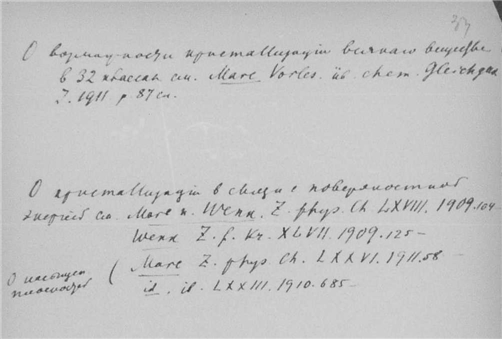 О возможности кристаллизаціи всякаго вещества
в 32 классах см. Marc Vorles. üb. chem. Gleichgew
J. 1911 p 87 сл.
О кристаллизаціи в связи с поверхностной
энергіей см. Marc u. Wenk. Z. phys. Ch LXVIII. 1909.104
Wenk Z. f. Kr. XLVII. 1909.125 —
О насыщен. плоскостей
( Marc Z. phys Ch. LXXVI. 1911.58 —
id. ib. LXXIII. 1910.685 —